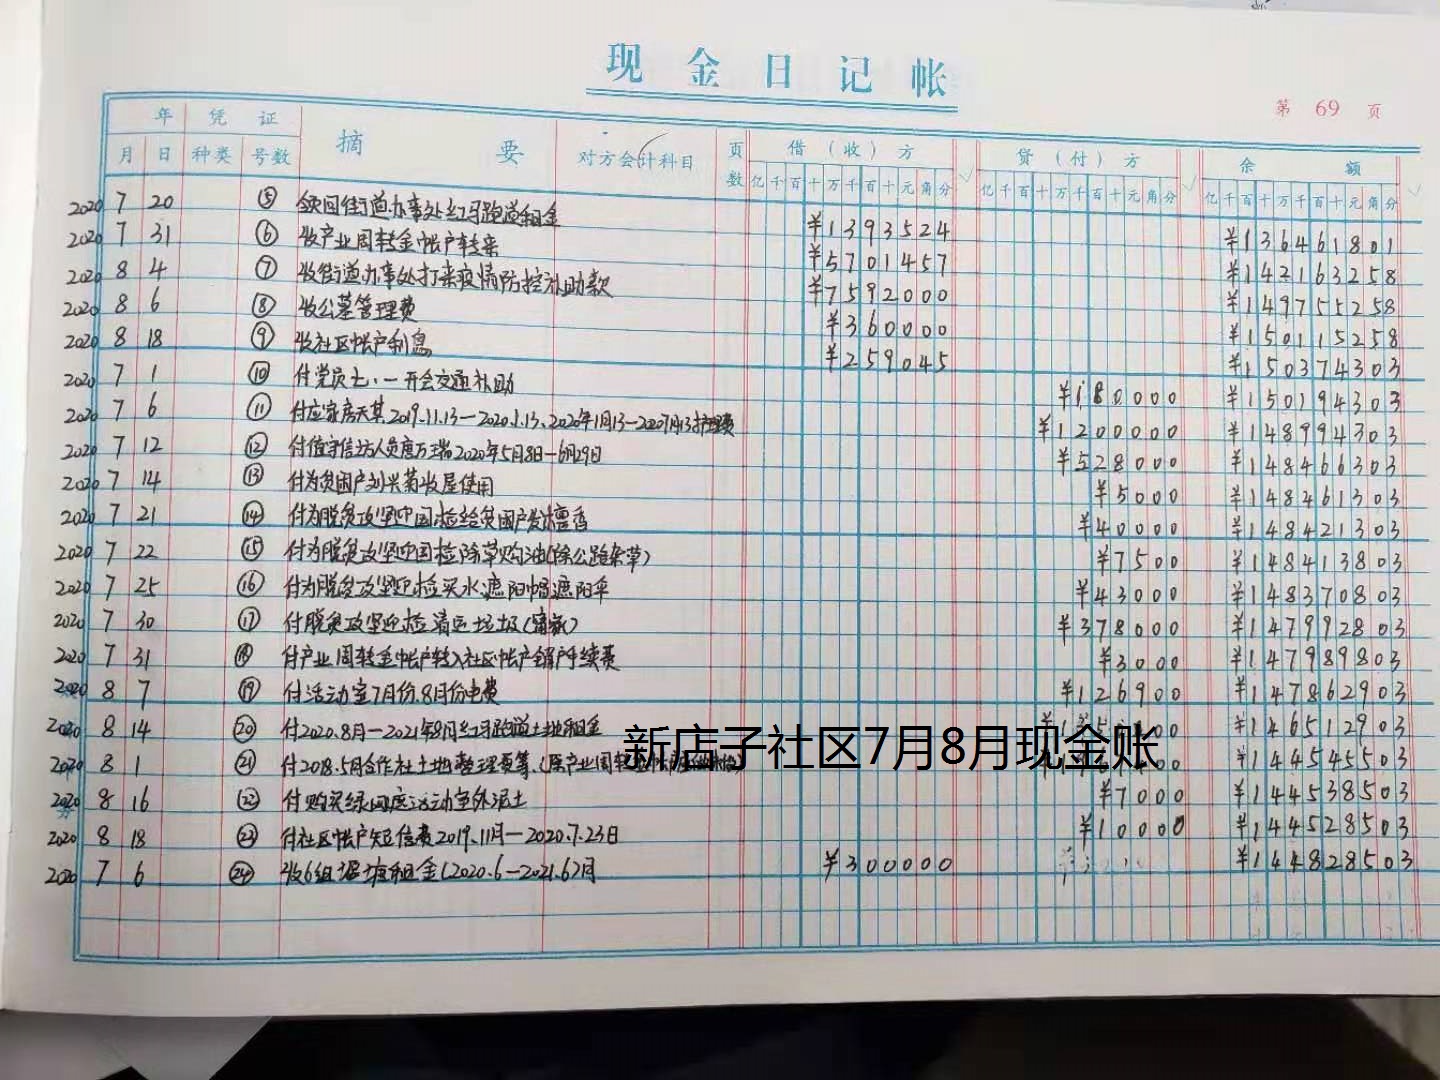 现金日记帐
第 69 页
年 凭证 摘要 对方会计科目 页数 借（收）方 贷（付）方 余额
月 日 种类 号数 亿千百十万千百十元角分 亿千百十万千百十元角分 亿千百十万千百十元角分
2020 7 20 ⑤ 街道办事处红马跑道租金 ¥1393524 ¥136461801
2020 7 31 ⑥ 收产业周转金帐户转来 ¥5701457 ¥142163258
2020 8 4 ⑦ 收街道办事处打来疫情防控补助款 ¥7592000 ¥149755258
2020 8 6 ⑧ 收公墓管理费 ¥360000 ¥150115258
2020 8 18 ⑨ 收社区帐户利息 ¥259045 ¥150374303
2020 7 1 ⑩ 付党员七.一开会交通补助 ¥180000 ¥150194303
2020 7 6 ⑪ 付应家房天某2019.11.13—2020.1.13、2020年1月13—2020.7月13护理费 ¥1200000 ¥148994303
2020 7 12 ⑫ 付值守信访人员 2020年5月8日—6月29日 ¥528000 ¥148466303
2020 7 14 ⑬ 付为贫困户刘兴菊收屋使用 ¥5000 ¥148461303
2020 7 21 ⑭ 付为脱贫攻坚迎国检给贫困户发檀香 ¥40000 ¥148421303
2020 7 22 ⑮ 付为脱贫攻坚迎国检除草购油(除公路杂草) ¥7500 ¥148413803
2020 7 25 ⑯ 付为脱贫攻坚迎检买水遮阳帽遮阳伞 ¥43000 ¥148370803
2020 7 30 ⑰ 付脱贫攻坚迎检清运垃圾 ¥378000 ¥147992803
2020 7 31 ⑱ 付产业周转金帐户转入社区帐户销户手续费 ¥3000 ¥147989803
2020 8 7 ⑲ 付活动室7月份.8月份电费 ¥126900 ¥147862903
2020 8 14 ⑳ 付2020.8月—2021年8月红马跑道土地租金 ¥146512903
2020 8 1 ㉑ 付2018.5月合作社土地整理费等 ¥144545503
2020 8 16 ㉒ 付购买绿网 活动室外泥土 ¥7000 ¥144538503
2020 8 18 ㉓ 付社区帐户短信费2019.11月—2020.7.23日 ¥10000 ¥144528503
2020 7 6 ㉔ 收6组堰塘租金(2020.6—2021.6)月 ¥300000 ¥144828503
新店子社区7月8月现金账